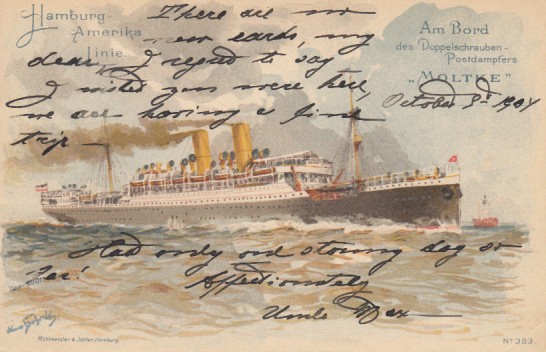 Hamburg-
Amerika
Linie.
Am Bord
des Doppelschrauben-
Postdampfers
„MOLTKE“
There are no
new cards, my
dear, I regret to say
I wished you were here,
we are having a fine
trip.
October 8th 1904
Had only one stormy day so
far!
Affectionately
Uncle Max
Mühlmeister & Johler, Hamburg.
No 383.